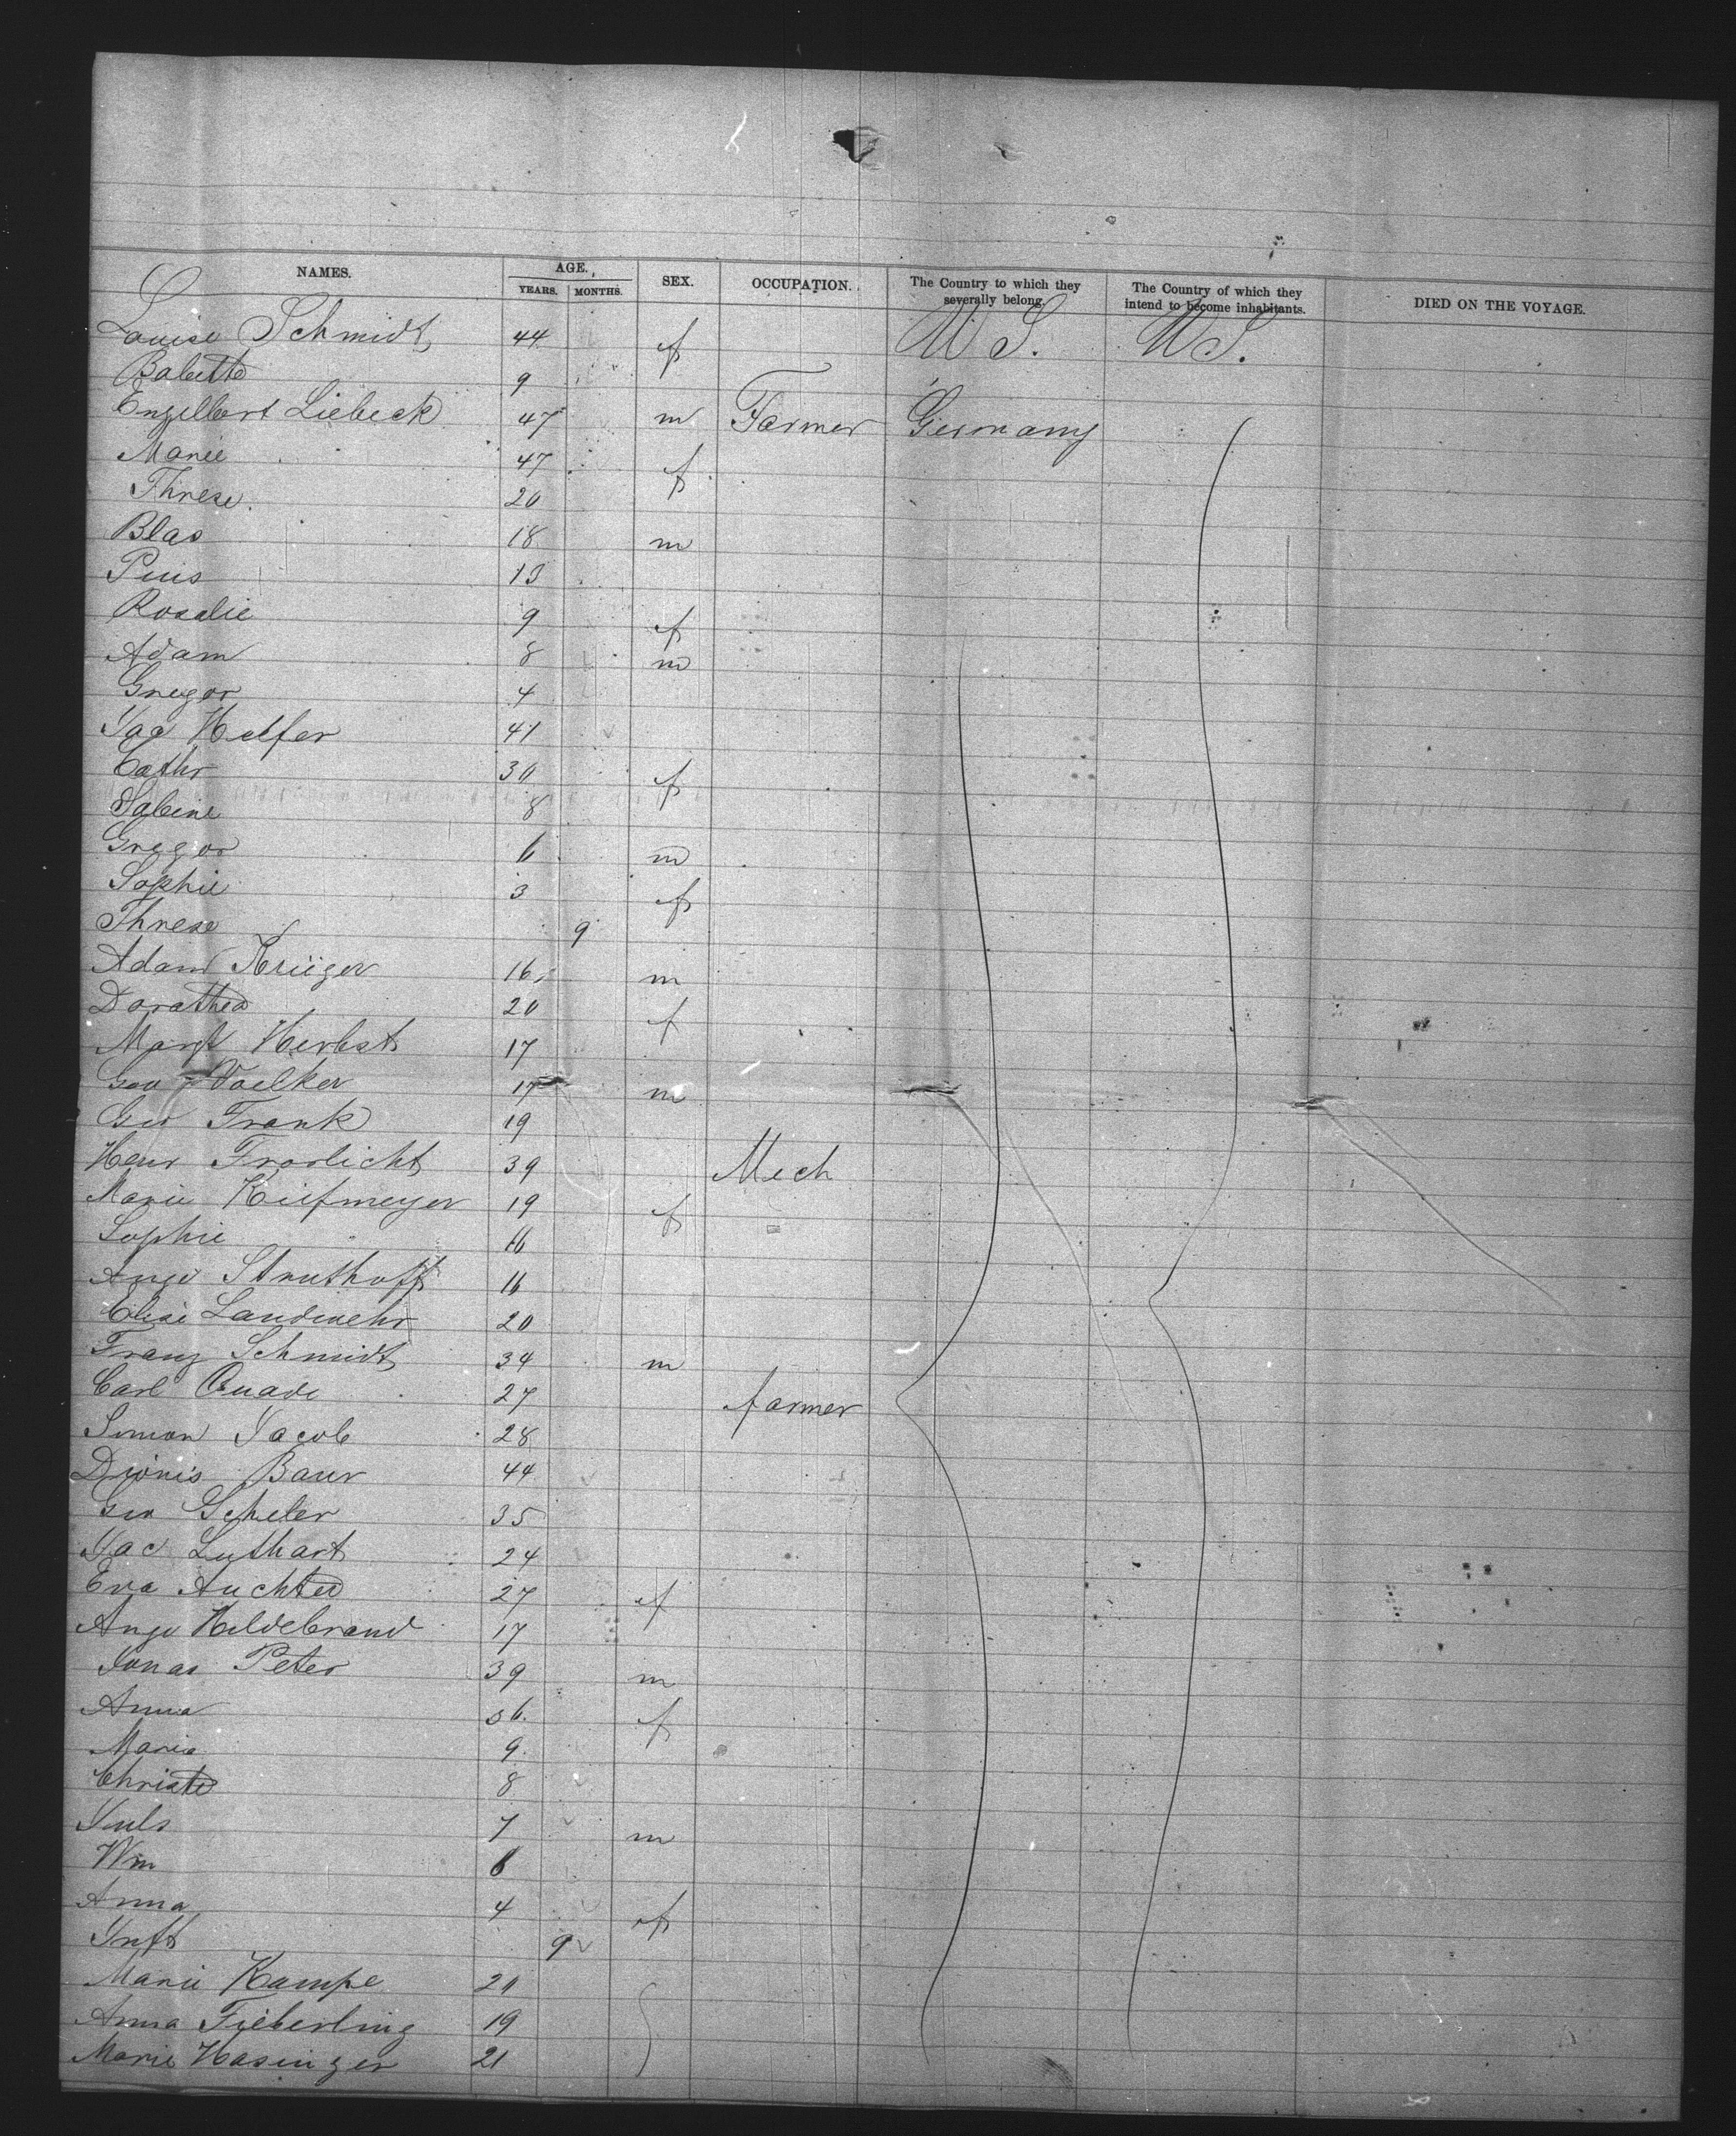 NAMES. AGE. YEARS. MONTHS. SEX. OCCUPATION. The Country to which they severally belong. The Country of which they intend to become inhabitants. DIED ON THE VOYAGE.
Louise Schmidt 44 f U S. U S.
Babette 9
Engelbert Liebeck 47 m Farmer Germany
Marie 47 f
Threse 20
Blas 18 m
Pius 13
Rosalie 9 f
Adam 8 m
Gregor 4
Jac Helfer 41
Cathr 30 f
Sabine 8
Gregor 6 m
Sophie 3 f
Threse 9
Adam Krüger 16 m
Dorathea 20 f
Margt Herbst 17
Geo Voelker 17 m
Geo Frank 19
Henr Frorlicht 39 Mech
Marie Kiefmeyer 19 f
Sophie 16
Auge Struthoff 16
Elise Landwehr 20
Franz Schmidt 34 m
Carl Quade 27 farmer
Simon Jacob 28
Dionis Baur 44
Geo Scheler 35
Jac Luthart 24
Eva Auchter 27 f
Auge Hildebrand 17
Jonas Peter 39 m
Anna 36 f
Maria 9
Christe 8
Juls 7 m
Wm 6
Anna 4 f
Inft 9
Marie Kampe 20
Anna Fieberling 19
Marie Hasinger 21